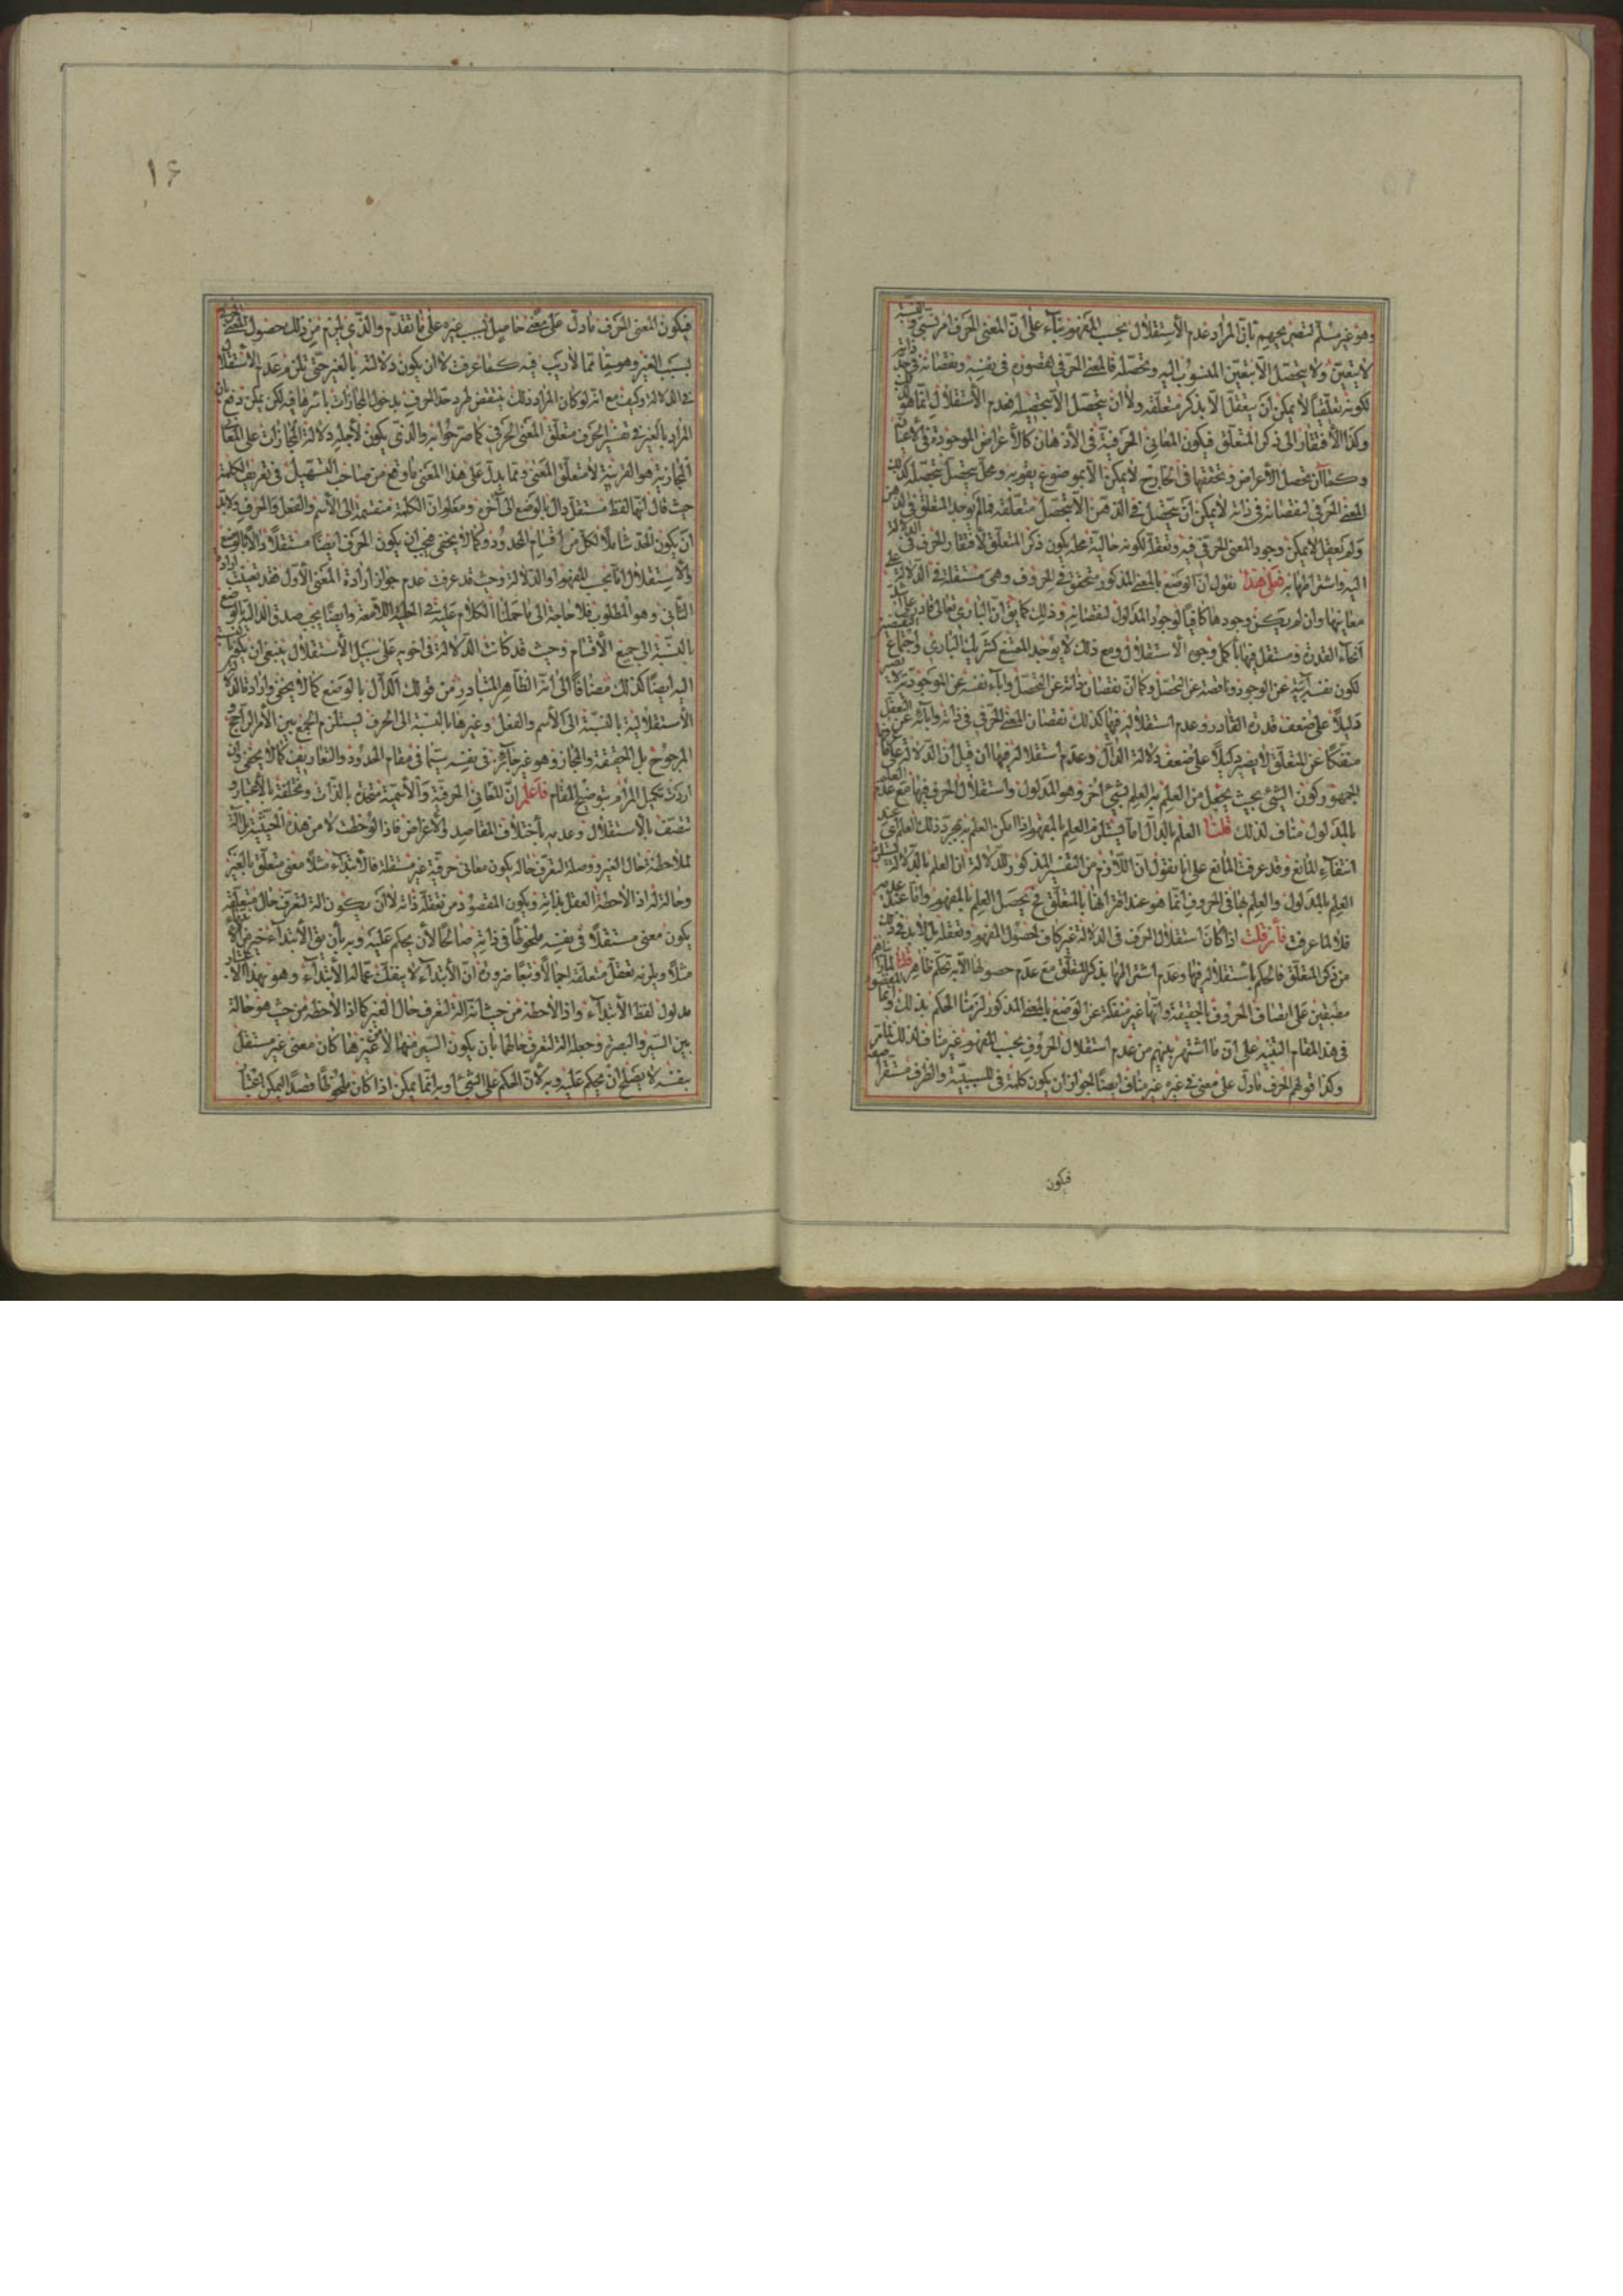 وهو غير مسلم لتصريحهم بان المراد عدم الأستقلال بحسب المفهوم بناء على ان المعنى الحرفى امر نسبى والنسبة
لا يتعين ولا يتحصل الا بتعين المنسوب اليه وتحصله فالمعنى الحرفى لقصوره فى نفسه ونقصانه فى حد ذاته
لكونه تعلقيا لا يمكن ان يتعقل الا بذكر متعلقه ولا ان يتحصل الا بتحصيله فعدم الأستقلال انما هو
وكذا الأفتقار الى ذكر المتعلق فيكون المعانى الحرفية فى الأذهان كالأعراض الموجودة فى الأعيان
وكما ان تحصل الأعراض وتحققها فى الخارج لا يمكن الا بموضوع يقوم به ومحل يتحصل بتحصله كذلك
المعنى الحرفى لنقصانه فى ذاته لا يمكن ان يتحصل فى الذهن الا بتحصل متعلقه فما لم يوجد المتعلق فى الذهن
ولم يعقل لا يمكن وجود المعنى الحرفى فيه وتعقله لكونه حالية محله يكون ذكر المتعلق لأفتقار الحرف فى الدلالة
اليه واشتراطها به فعلى هذا نقول ان الوضع بالمعنى المذكور متحقق فى الحروف وهى مستقلة فى الدلالة على
معانيها وان لم يكن وجودها كافيا لوجود المدلول لنقصانه وذلك كما يق ان البارى تعالى قادر على
انحاء القدرة ومستقل فيها بأكمل وجوه الأستقلال ومع ذلك لا يوجد الممتنع كشريك البارى واجتماع النقيضين
لكون نفسه آبية عن الوجود وناقصة عن التحصل وكما ان نقصان ذاته عن التحصل وآباء نفسه عن الموجودية لا يصير
دليلا على ضعف قدرة القادر وعدم استقلاليته فيها كذلك نقصان المعنى الحرفى فى ذاته وابائه عن التعقل
منفكا عن المتعلق لا يصير دليلا على ضعف دلالة الدال وعدم استقلاله فيها فان قيل ان الدلالة على ما عرفها
الجمهور كون الشئ بحيث يحصل من العلم به العلم بشئ اخر وهو المدلول واستقلال الحرف فيها مع عدم العلم
بالمدلول مناف لذلك قلنا العلم بالدال انما يستلزم العلم بالمفهوم اذا امكن العلم به بمجرد ذلك العلم اى عند
انتفاء المانع وقد عرفت المانع على انا نقول ان اللازم من التفسير المذكور للدلالة ان العلم بالدلالة يستلزم
العلم بالمدلول والعلم بها فى الحروف انما هو عند اقترانها بالمتعلق فح يحصل العلم بالمفهوم واما عند عدمه
فلا لما عرفت فأن قلت اذا كان استقلال الحرف فى الدلالة غير كاف لحصول المفهوم وتعقله بل لا بد فى ذلك
من ذكر المتعلق فالحكم بأستقلاله فيها وعدم اشتراطها بذكر المتعلق مع عدم حصولها الا به تحكم ظاهر قلنا لما كانوا
مطبقين على اتصاف الحروف بالحقيقة وانها غير منفكة عن الوضع بالمعنى المذكور لزمنا الحكم بذلك وانما المقصود
فى هذا المقام التنبيه على ان ما اشتهر بينهم من عدم استقلال الحروف بحسب المفهوم غير مناف لذلك لما مر
وكذا قولهم الحرف ما دل على معنى فى غيره غير مناف ايضا لجواز ان يكون كلمة فى للسببية والظرف مستقرا صفة
فيكون
١۶
فيكون المعنى الحرف ما دل على معنى حاصل بسبب غيره على ما تقدم والذى يلزم من ذلك حصول المعنى الحرفى
بسبب الغير وهو مما لا ريب فيه كما عرفت لا ان يكون دلالته بالغير حتى يلزم عدم الأستقلال
فى الدلالة وكيف مع انه لو كان المراد ذلك ينتقض طرد حد الحرف بدخول المجازات باسرها فيه لكن يمكن دفعه بان
المراد بالغير فى تفسير الحرف متعلق المعنى الحرفى كما صرحوا به والذى يكون لأجله دلالة المجازات على المعانى
المجازية هو القرينة لا متعلق المعنى ومما يدل على هذا المعنى ما وقع من صاحب التسهيل فى تعريف الكلمة
حيث قال انها لفظ مستقل دال بالوضع الى آخره ومعلوم ان الكلمة منقسمة الى الأسم والفعل والحرف ولابد
ان يكون الحد شاملا لكل من اقسام المحدود وكما لا يخفى فيجب ان يكون الحرف ايضا مستقلا دالا بالوضع
والأستقلال اما بحسب المفهوم او الدلالة وحيث قد عرفت عدم جواز ارادة المعنى الأول فقد تعين ارادة
الثانى وهو المطلوب فلا حاجة الى ما حملنا الكلام عليه فى الحلية اللامعة وايضا يجب صدق الدال بالوضع
بالنسبة الى جميع الأقسام وحيث قد كانت الدلالة فى اخويه على سبيل الأستقلال ينبغى ان يكون بالنسبة
اليه ايضا كذلك مضافا الى انه الظاهر المتبادر من قولك الدال بالوضع كما لا يخفى وارادة الدلالة
الأستقلالية بالنسبة الى الأسم والفعل وغيرها بالنسبة الى الحرف يستلزم الجمع بين الأمر الراجح و
المرجوح بل الحقيقة والمجاز وهو غير جائز فى نفسه سيما فى مقام الحدود والتعاريف كما لا يخفى وان
اردت تكميل المرام بتوضيح المقام فاعلم ان المعانى الحرفية والأسمية متحدة بالذات ومختلفة الأعتبار و
تتصف بالأستقلال وعدمه بأختلاف المقاصد والأعراض فاذا لوحظت لا من هذه الحيثية بل آلة
لملاحظة حال الغير ووصلة لتعرف حاله يكون معانى حرفية غير مستقلة فالأبتداء مثلا معنى متعلق بالغير
وحالة له اذا لاحظه العقل بذاته ويكون المقصود من تعقله ذاته لا ان يكون آلة لتعرف حال متعلقه
يكون معنى مستقلا فى نفسه ملحوظا فى ذاته صالحا لأن يحكم عليه وبه بأن يق الأبتداء خير من الأنتهاء
مثلا ويلزمه تعقل متعلقه اجمالا وتبعا ضرورة ان الأبتداء لا ينفك عما له الأبتداء وهو بهذا الأعتبار
مدلول لفظ الأبتداء واذا لاحظه من حيث انه آلة لتعرف حال الغير كما اذا لاحظه من حيث هو حالة
بين السير والبصرة وجعله آلة لتعرف حالهما بان يكون السير منها لا من غيرها كان معنى غير مستقل
بنفسه لا يصلح ان يحكم عليه وبه لأن الحكم على الشئ او به انما يمكن اذا كان ملحوظا قصدا ليمكن اعتبار